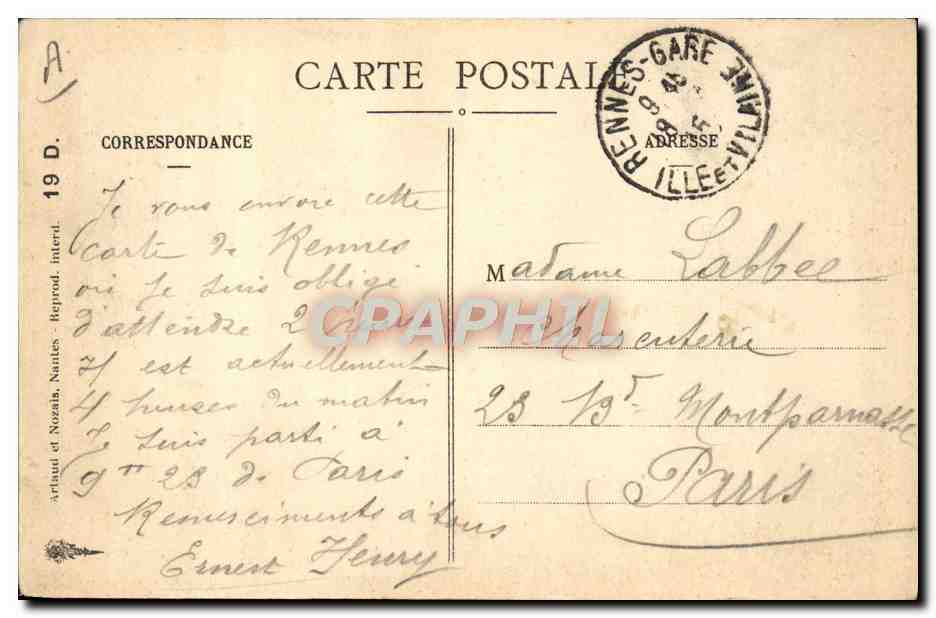 A
CARTE POSTALE
RENNES-GARE
ILLE ET VILAINE
CORRESPONDANCE
ADRESSE
Je vous envoie cette
carte de Rennes
où je suis obligé
d'attendre 2 heures
Il est actuellement
4 heures du matin
Je suis parti à
9h 28 de Paris
Remerciments à tous
Ernest Henry
Madame Labbee
Charcuterie
23 Bd Montparnasse
Paris
Artaud et Nozais, Nantes - Reprod. interd. 19 D.
CPAPHIL